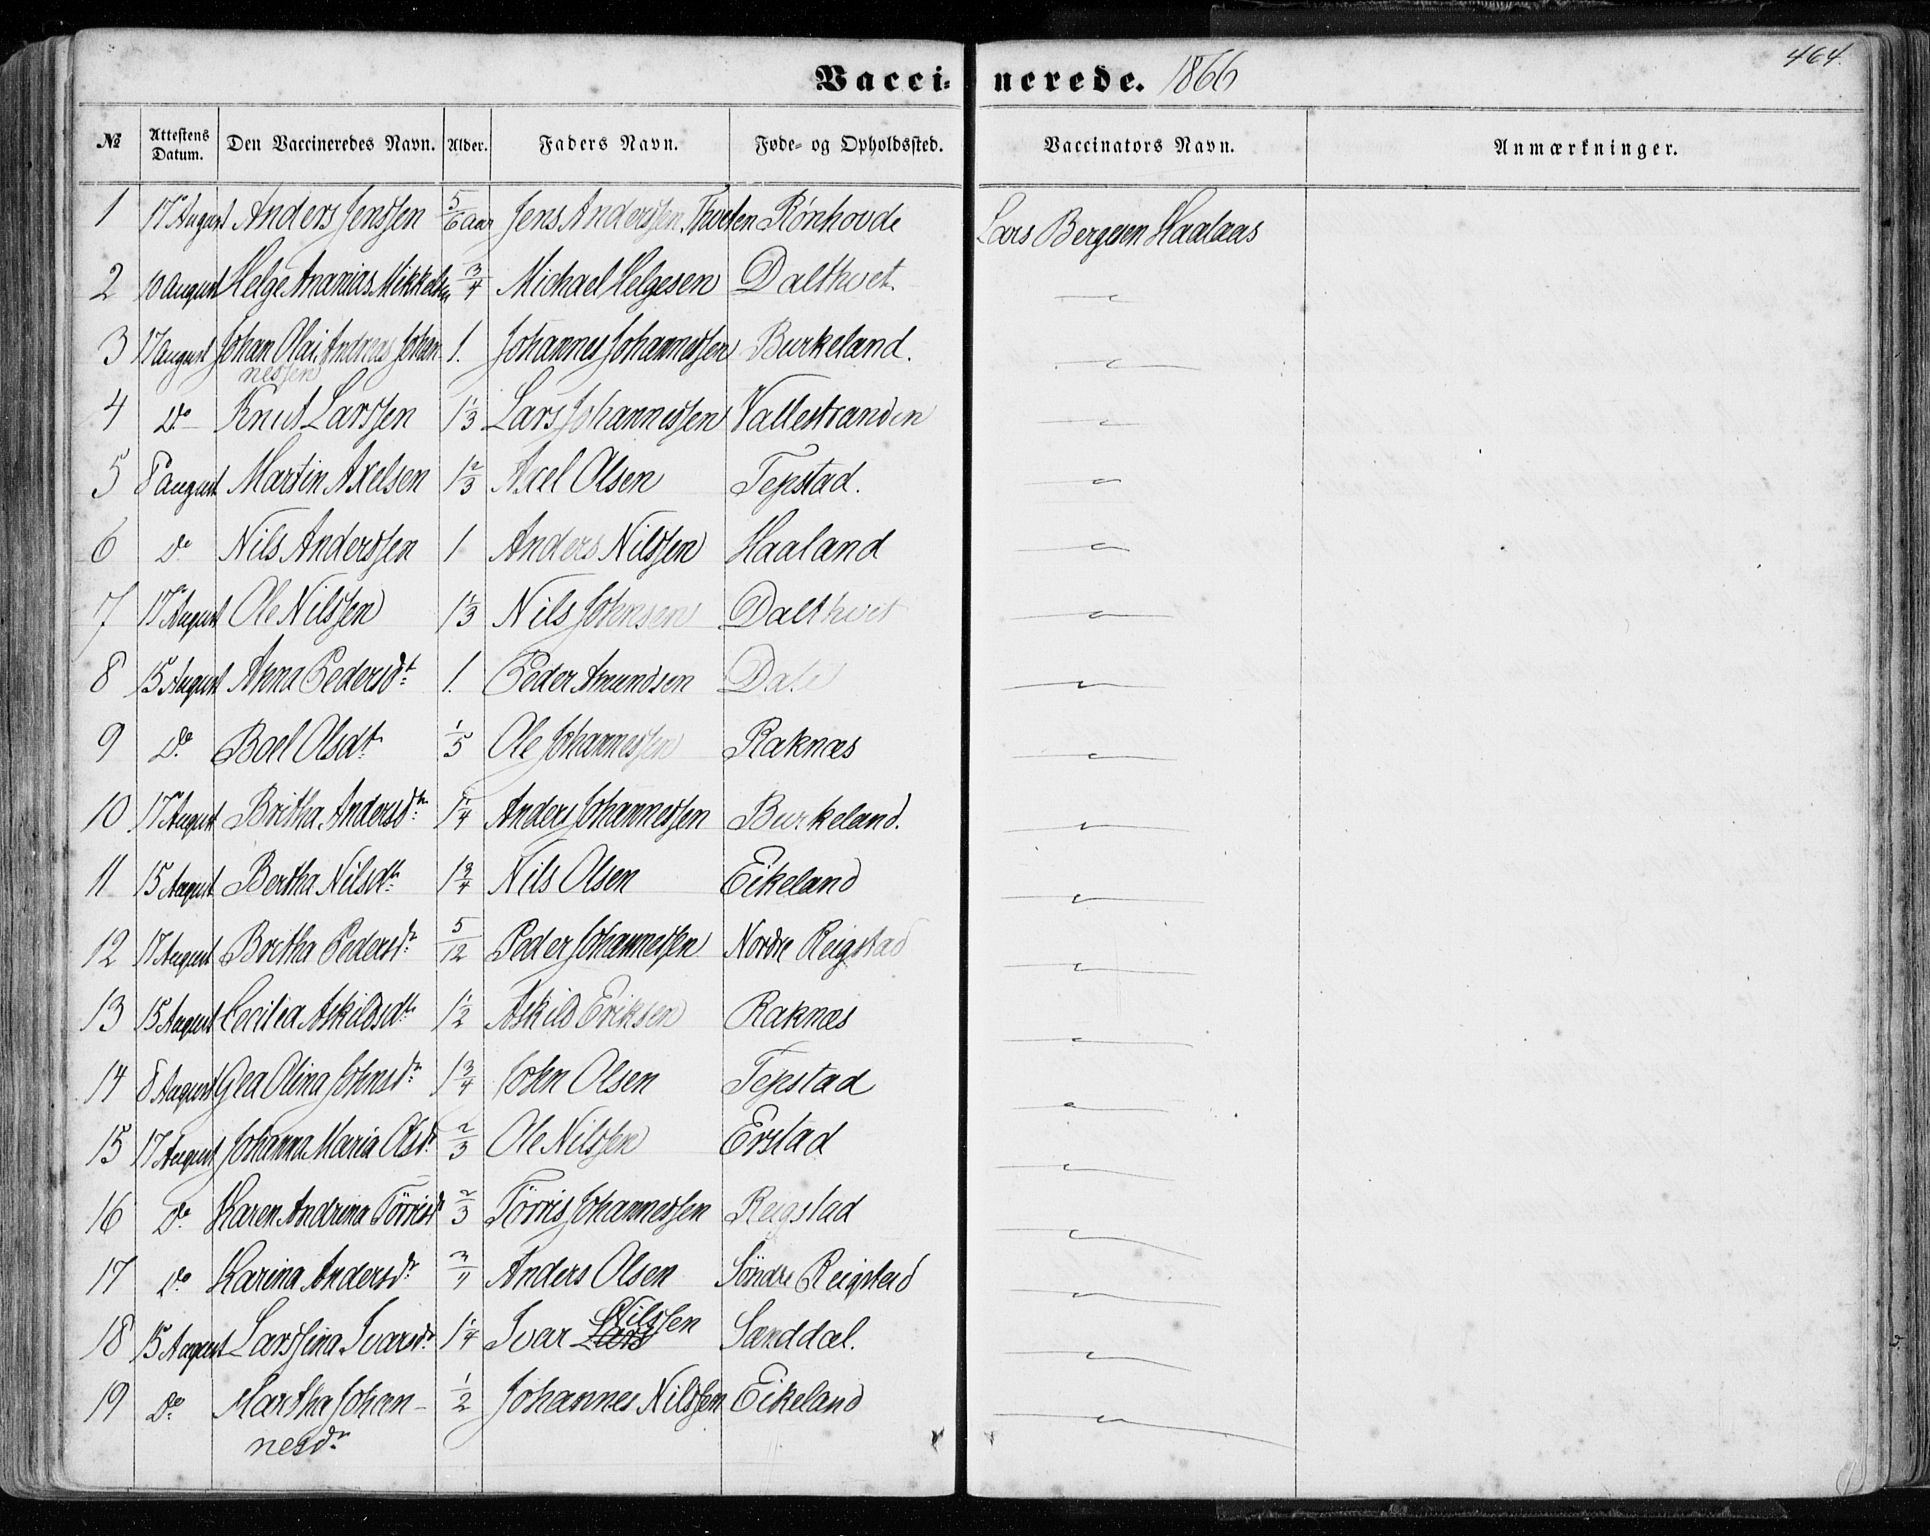 464.
Vacci- nerede. 1866
№ Attestens Datum. Den Vaccineredes Navn. Alder. Faders Navn. Føde- og Opholdssted. Vaccinators Navn. Anmærkninger.
1 17 August Anders Jenssen 5/6 aar Jens Anderssen Rönhovde Lars Bergesen Haalaas
2 10 august Helge Ananias Mikkelsen 3/4 Michael Helgesen Dalthvet. — " —
3 17 august Johan Olai Andreas Johan- 1. Johannes Johannessen Burkeland. — " —
nessen
4 Do Knut Larssen 1 1/3 Lars Johannessen Vallestranden — " —
5 8 august Martin Axelsen 1 2/3 Axel Olsen Tepstad. — " —
6 Do Nils Anderssen 1 Anders Nilssen Haaland — " —
7 17 August Ole Nilssen 1 1/3 Nils Johnsen Dalthvet — " —
8 15 August Anna Pedersdt 1. Peder Amundsen Dale — " —
9 Do Boel Olsdt 1/5 Ole Johannessen Raknæs — " —
10 17 August Britha Andersdtr 1 1/4 Anders Johannessen Burkeland. — " —
11 15 August Bertha Nilsdtr 1 3/4 Nils Olsen Eikeland — " —
12 17 August Britha Pedersdr 5/12 Peder Johannessen Nordre Reigstad — " —
13 15 August Cecilia Askildsdtr 1 1/2 Askild Eriksen Raknæs — " —
14 8 August Gea Olina Johnsdr 1 3/4 John Olsen Tepstad — " —
15 17 August Johanna Maria Olsdr 2/3 Ole Nilssen Erstad — " —
16 Do Karen Andrina Törrisdr 2/3 Törris Johannessen Reigstad — " —
17 Do Karina Andersdr Anders Olsen Söndre Reigstad — " —
18 15 August Larssina Ivarsdr 1 1/4 Ivar Lars Nilssen Sanddal. — " —
19 Do Martha Johan- 1/2 Johannes Nilssen Eikeland — " —
nesdr